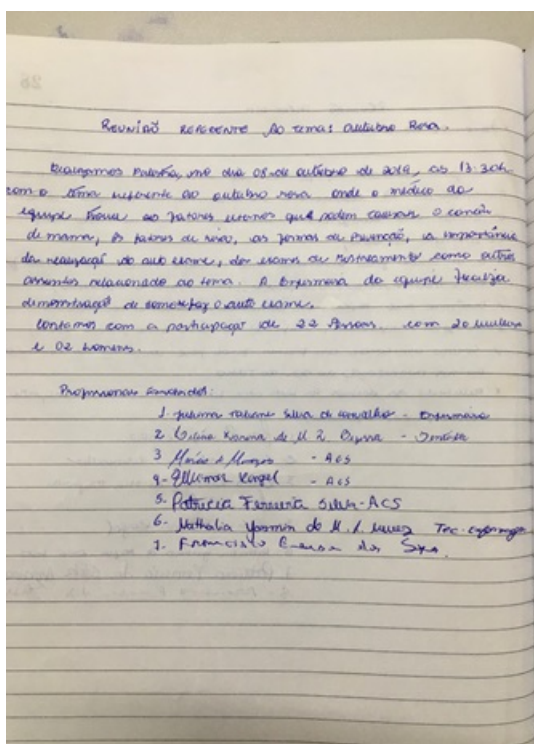 REUNIÃO REFERENTE AO TEMA: outubro Rosa.
Realizamos Palestra, no dia 08 de outubro de 2019, as 13:30h
com o tema referente ao outubro rosa onde o médico da
equipe os fatores que podem causar o cancer
de mama, os fatores de risco, as formas de prevenção, a importância
da realização do auto exame, dos exames de rastreamento como outros
assuntos relacionado ao tema. A Enfermeira da equipe realiza
demonstração de como faz o auto exame.
Contamos com a participação de 22 Pessoas. com 20 mulheres
e 02 homens.
Profissionais
1. Silva de carvalho - Enfermeira
2. de M.
3. - ACS
4. - ACS
5. Patricia Ferreira Silva - ACS
6. Nathalia Yasmin de M. Tec. enfermagem
7. Francisco dos